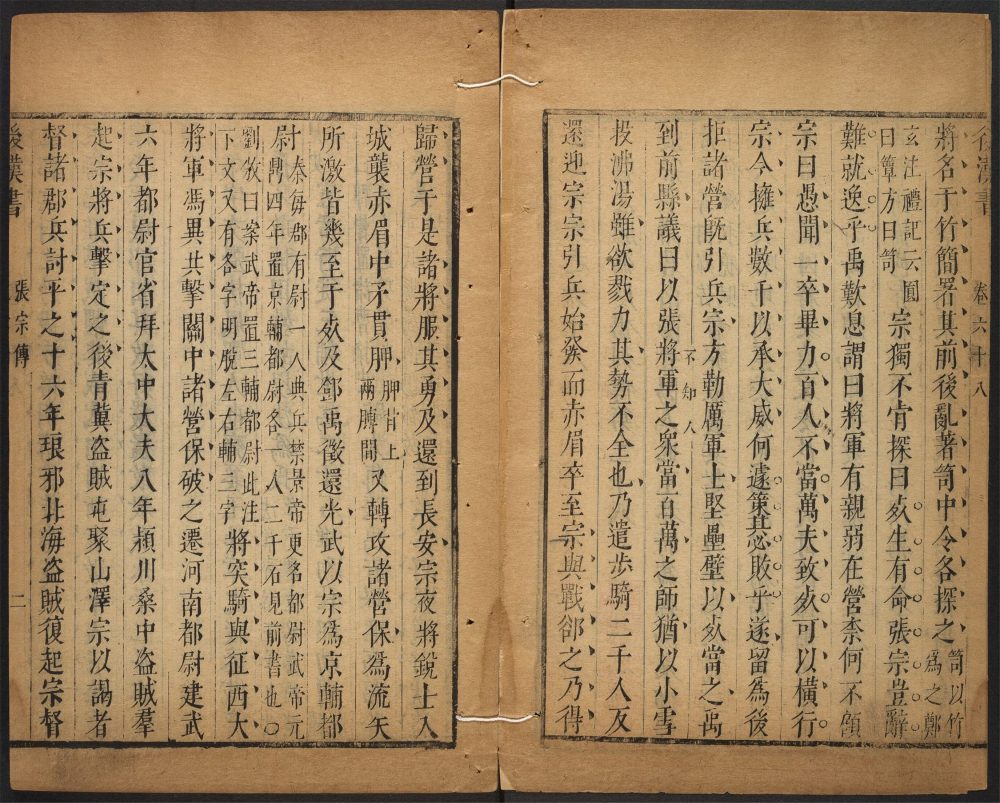 後漢書 卷六十八
將名于竹簡署其前後亂著笥中令各探之笥以竹爲之鄭
玄注禮記云圓曰簞方曰笥宗獨不肯探曰死生有命張宗豈辭
難就逸乎禹歎息謂曰將軍有親弱在營柰何不顧
宗曰愚聞一卒畢力百人不當萬夫致死可以橫行
宗今擁兵數千以承大威何遽策其必敗乎遂留爲後
拒諸營旣引兵宗方勒厲軍士堅壘壁以死當之禹
不知人
到前縣議曰以張將軍之衆當百萬之師猶以小雪
投沸湯雖欲戮力其勢不全也乃遣步騎二千人反
還迎宗宗引兵始發而赤眉卒至宗與戰郤之乃得
歸營于是諸將服其勇及還到長安宗夜將銳士入
城襲赤眉中矛貫胛胛背上兩膊間又轉攻諸營保爲流矢
所激皆幾至于死及鄧禹徵還光武以宗爲京輔都
尉秦每郡有尉一人典兵禁景帝更名都尉武帝元鼎四年置京輔都尉各一人二千石見前書也○
劉攽曰案武帝置三輔都尉此注下文又有各字明脫左右輔三字將突騎與征西大
將軍馮異共擊關中諸營保破之遷河南都尉建武
六年都尉官省拜太中大夫八年潁川桑中盜賊羣
起宗將兵擊定之後青冀盜賊屯聚山澤宗以謁者
督諸郡兵討平之十六年琅邪北海盜賊復起宗督
後漢書 張宗傳 二